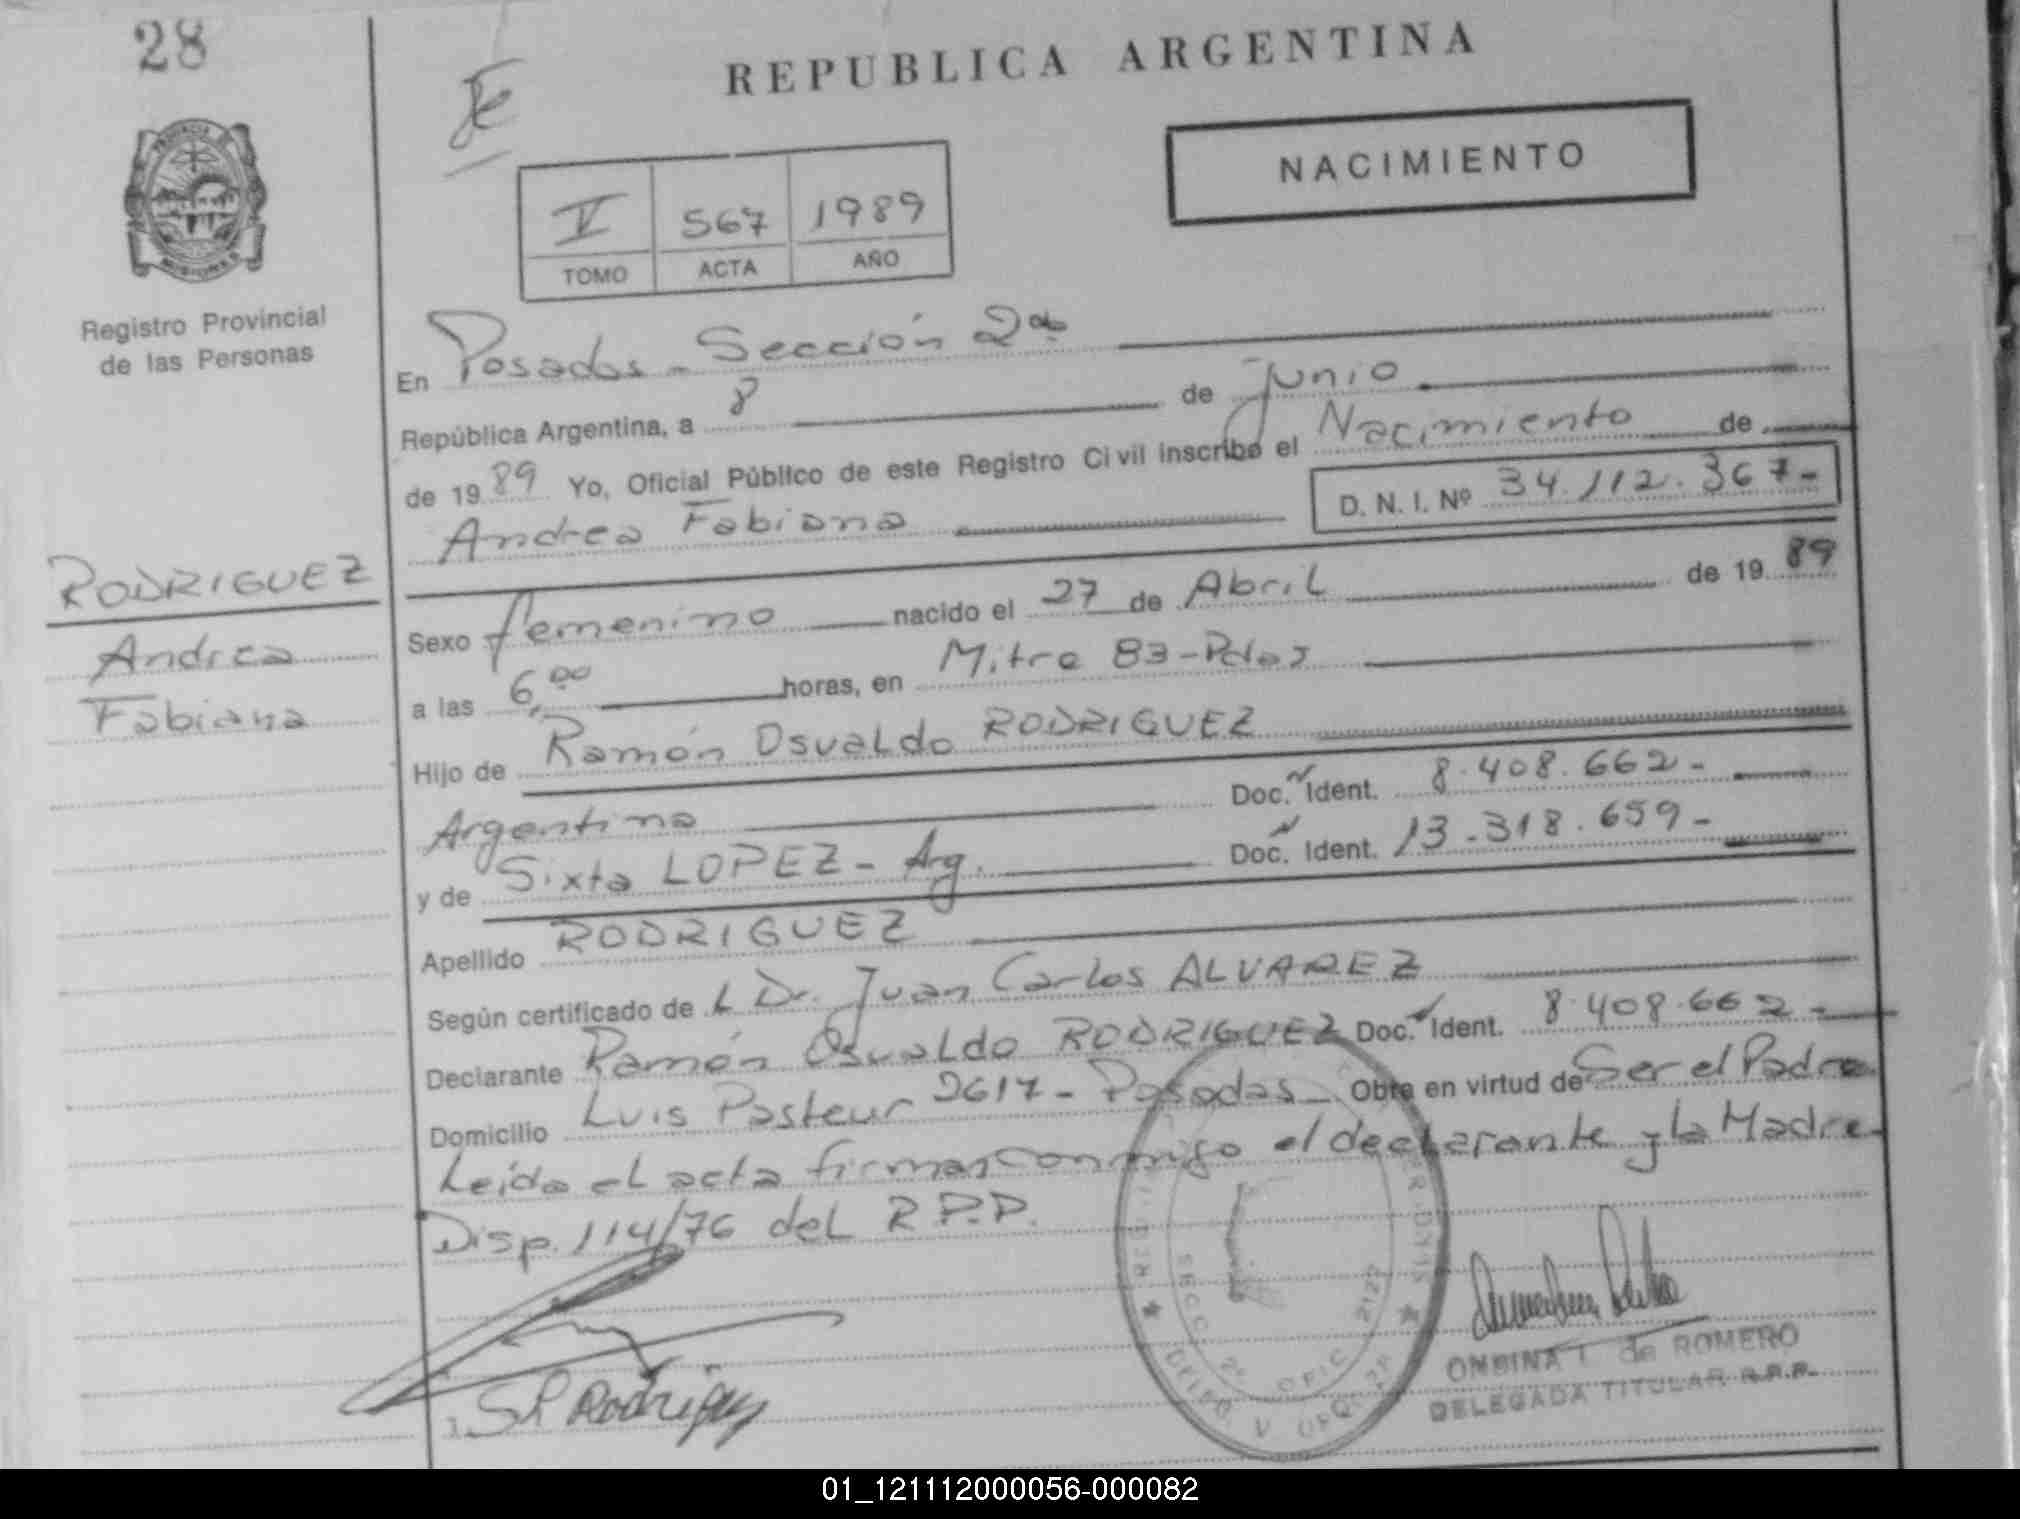 28
REPUBLICA ARGENTINA
NACIMIENTO
V 567 1989
TOMO ACTA AÑO
PROVINCIA
MISIONES
Registro Provincial
de las Personas
En Posadas - Sección 2da
República Argentina, a 8 de junio
de 1989 Yo, Oficial Público de este Registro Civil inscribo el Nacimiento de
Andrea Fabiana D. N. I. Nº 34.112.367-
RODRIGUEZ
Andrea
Fabiana
Sexo femenino nacido el 27 de Abril de 1989
a las 6,00 horas, en Mitre 83-Pdas
Hijo de Ramón Osvaldo RODRIGUEZ
Argentino Doc. Ident. 8.408.662-
y de Sixta LOPEZ - Arg. Doc. Ident. 13.318.659-
Apellido RODRIGUEZ
Según certificado de L Dr. Juan Carlos ALVAREZ
Declarante Ramón Osvaldo RODRIGUEZ Doc. Ident. 8.408.662-
Domicilio Luis Pasteur 2617- Posadas Obra en virtud de Ser el Padre
Leída el acta firman conmigo el declarante y la Madre
Disp. 114/76 del R.P.P.
SECC 2ª OFIC 2127
S L Rodriguez
ONBINA I. de ROMERO
DELEGADA TITULAR R.P.P.
01_121112000056-000082